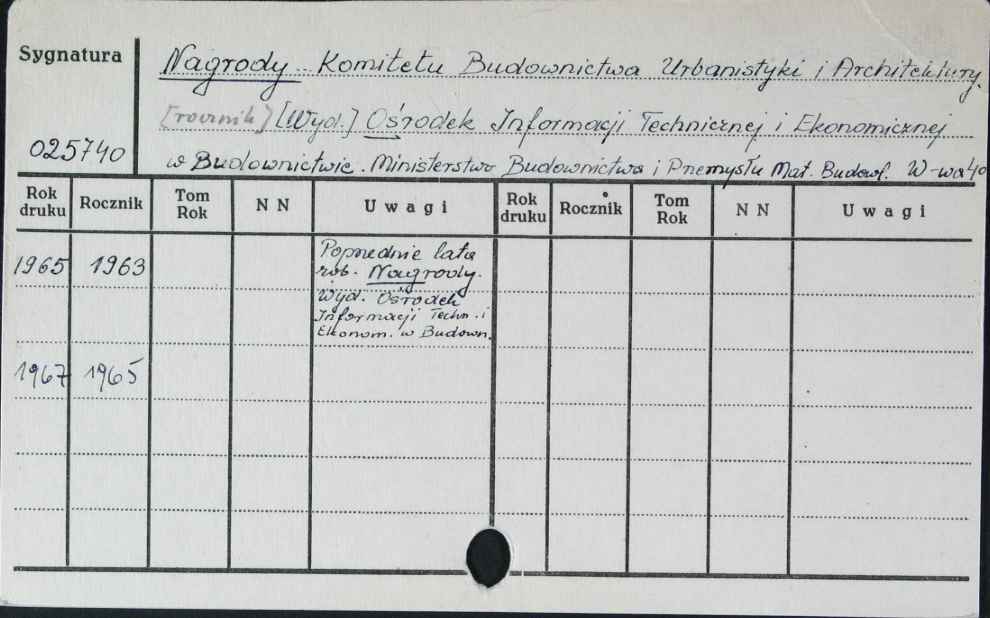 Sygnatura
Nagrody Komitetu Budownictwa Urbanistyki i Architektury.
[rocznik] [Wyd.] Ośrodek Informacji Technicznej i Ekonomicznej
025740
w Budownictwie. Ministerstwo Budownictwa i Przemysłu Mat. Budowl. W-wa 40
Rok druku Rocznik Tom Rok N N Uwagi Rok druku Rocznik Tom Rok N N Uwagi
1965 1963 Poprzednie lata
zob. Nagrody.
Wyd. Ośrodek
Informacji Techn. i
Ekonom. w Budown.
1967 1965